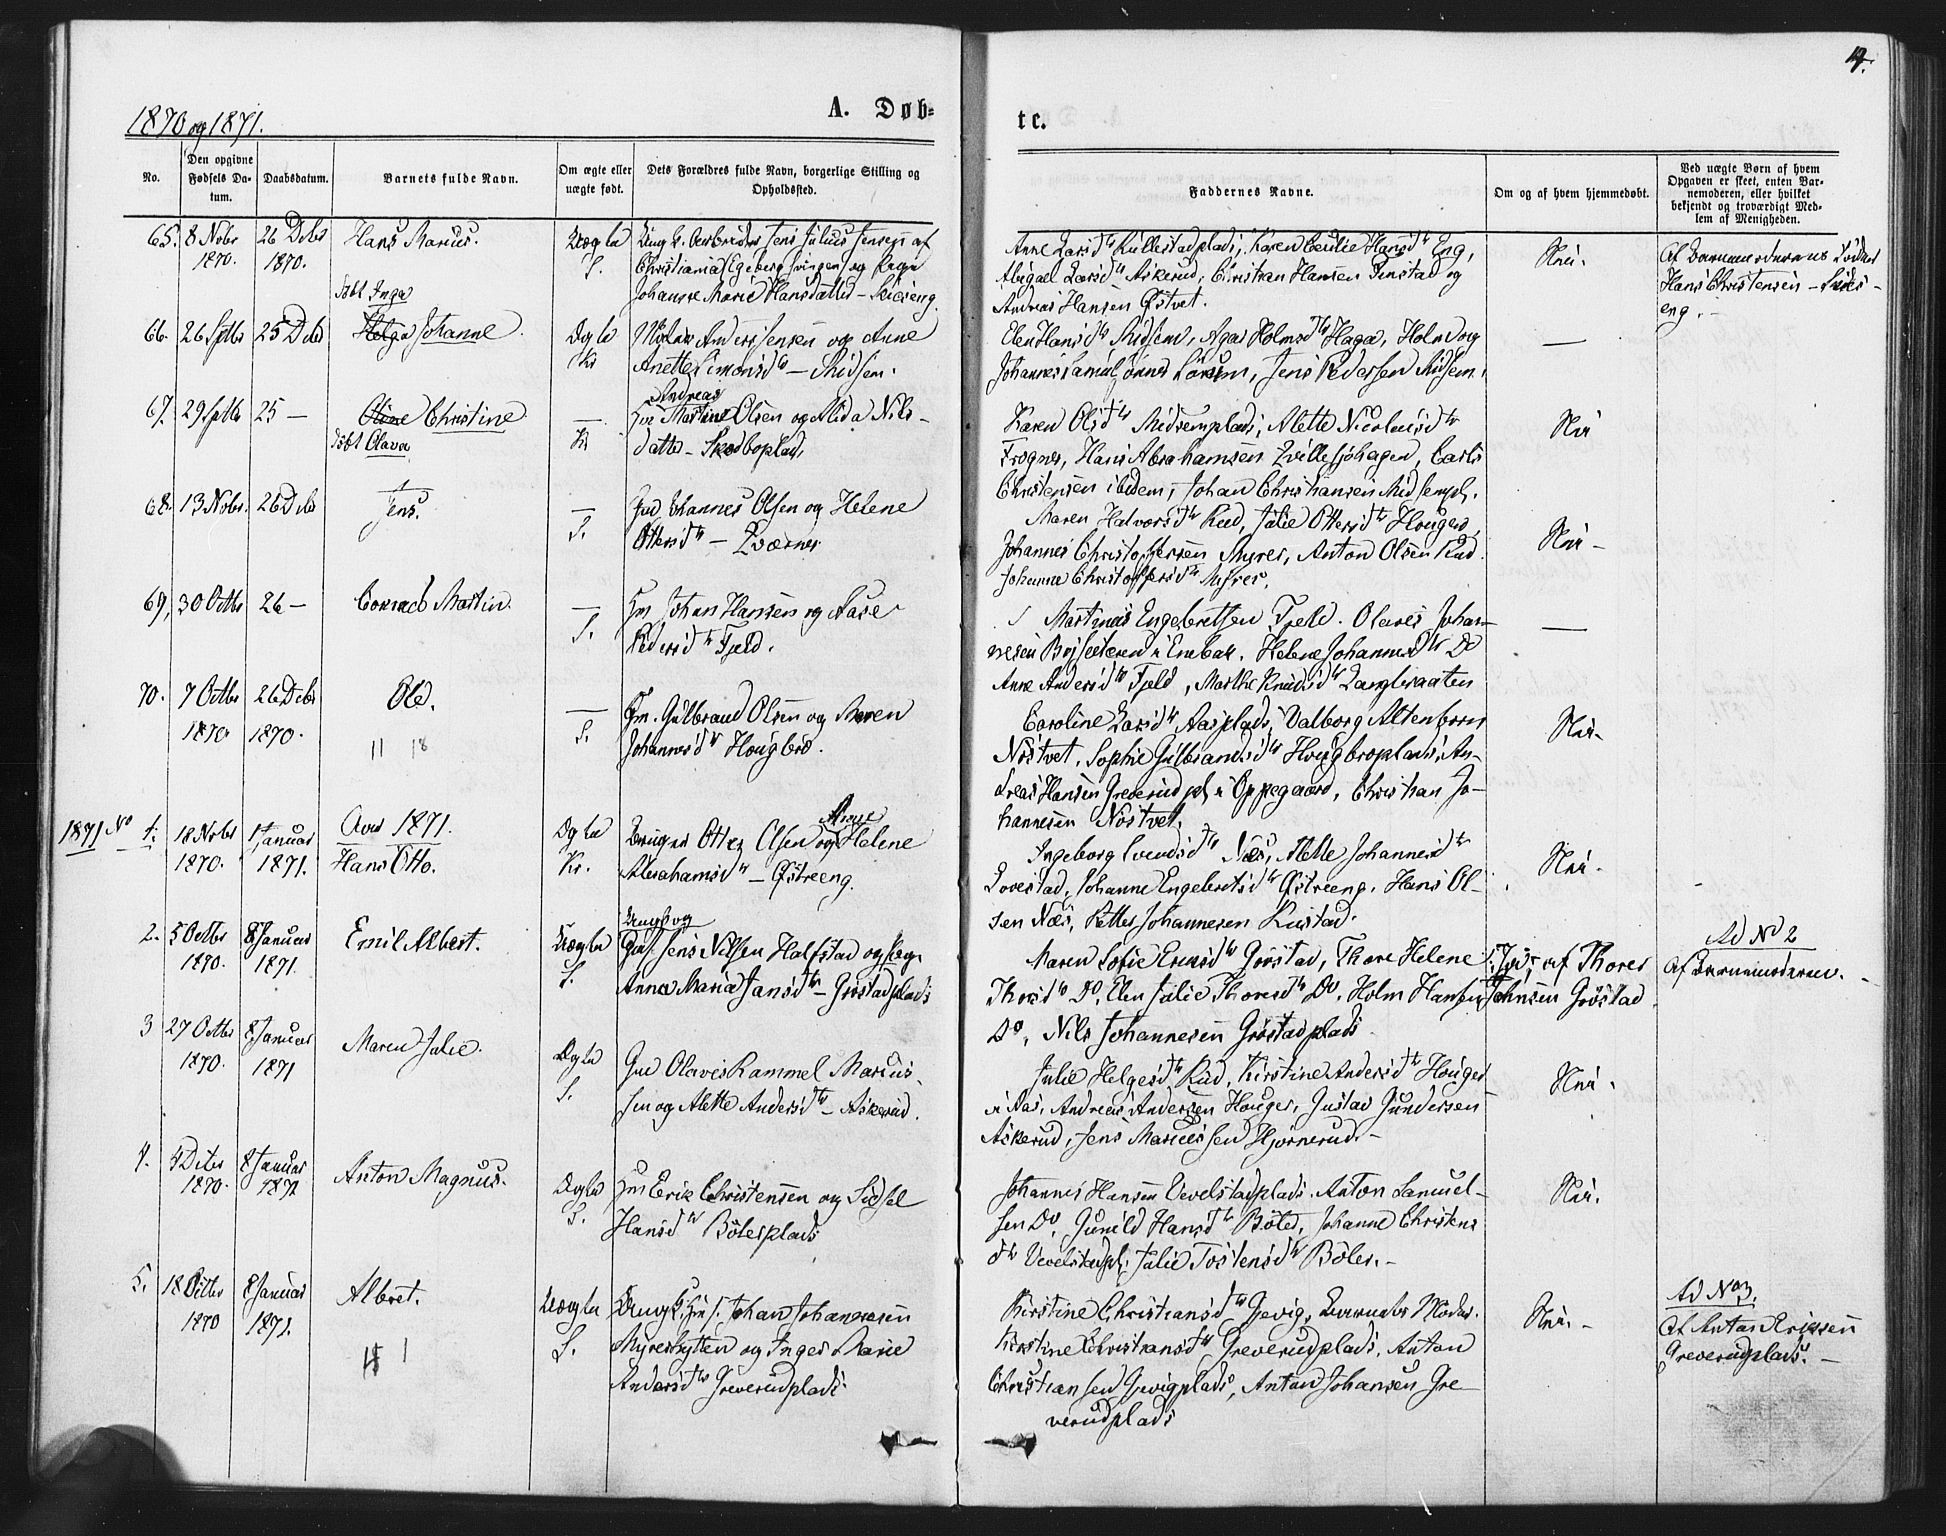 4.
1870 og 1871.
A. Døb-
te.
No.
Den opgivne Fødsels Da-
tum.
Daabsdatum.
Barnets fulde Navn.
Om ægte eller
uægte født.
Dets Forældres fulde Navn, borgerlige Stilling og
Opholdssted.
Faddernes Navne.
Om og af hvem hjemmedøbt.
Ved uægte Børn af hvem
Opgaven er skeet, enten Bar-
nemoderen, eller hvilket
bekjendt og troværdigt Med-
lem af Menigheden.
65. 8 Nobr 26 Debr Hans Marius. Uægte
1870. 1870. S.
Ungk. Arbeider Jens Julius Jensen af
Christiania Egeberg svingen og Pige
Johanne Marie Hansdatter – Skieseng
Anne Larsdtr Kullestadplads, Karen Cecilie Hansdtr Eng,
Abigael Larsdtr Askerud, Christian Hansen Finstad og
Andreas Hansen Østvet.
Nei.
Af Barnemoderens Fader
Hans Christensen – Skies-
eng.
66. 26 Sptbr 25 Debr døbt Inga
Helga Johanne. Ægte
K.
Anders Jensen og Anne
Anette Simonsdtr – Midsem.
Elen Hansdtr Midsem, Agas Holmsdtr Haga, Holm og
Johannes Samuelsønner Løken, Jens Pedersen Midsem.
—
67. 29 Sptbr 25 — Oline Christine
døbt Olava
—
K.
Andreas
Martine Olsen og Alida Nils-
datter – Skodboplads
Karen Olsdtr Midsemplads, Alette Nicolaisdtr
Frogner, Hans Abrahamsen Lillesjøhagen, Carl
Christensen ibidem, Johan Christiansen Midsempl.
Nei
68. 13 Nobr. 26 Debr Jens.
—
S.
Gmd Johannes Olsen og Helene
Ottersdtr – Kværner
Maren Halvorsdtr Rud, Julie Ottersdtr Houger,
Johannes Christoffersen Myrer, Anton Olsen Rud.
Johanne Christoffersdtr Myrer.
Nei –
69. 30 Octbr 26 — Conrad Martin.
—
S.
Hm Johan Hansen og Aase
Pedersdtr Fjeld.
Martinus Engebretsen Fjeld. Olaves Johan-
nesen Bøjsæteren i Enebak. Helene Johannesdtr Do
Anne Andersdtr Fjeld, Marthe Knudsdtr Langbraaten
—
70. 7 Octbr 26 Debr Ole.
1870 1870. 11 18
—
S.
Gm. Gulbrand Olsen og Maren
Johannesdtr Hougbro.
Caroline Larsdtr Aasplads, Valborg Altenborn
Nøstvet, Sophie Gulbrandsdtr Hougbroplads, An-
dreas Hansen Greverud pl. i Oppegaard, Christian Jo-
hannesen Nøstvet.
Nei.
1871 No 1. 18 Nobr 1 Januar Aar 1871.
1870. 1871. Hans Otto.
Ægte
K.
Anne
Bruger Otter Olsen og Helene
Abrahamsdtr – Østreeng.
Ingeborg Svendsdtr Næs, Alette Johannesdtr
Lovestad, Johanne Engebretsdtr Østreeng. Hans Ol-
sen Næs, Petter Johannesen Kustad.
Nei.
2. 5 Octbr 8 Januar Emil Albert.
1870. 1871.
Uægte
S.
Ungk og
Gaf. Jens Nilsen Halfstad og Pige
Anne Maria Jansdtr – Grøstadplads
Maren Sofie Eriksdtr Grøstad, Thore Helene
Thorsdtr Do. Elen Julie Thoresdtr Do. Holm Hansen
Do, Nils Johannesen Grøstadplads
Ja, af Thorer
Johnsen Grøstad
Ad No 2
Af Barnemoderen.
3 27 Octbr 8 Januar Maren Julie.
1870. 1871
Ægte
S.
Gmd Olaves Rammel Marius-
sen og Alette Andersdtr – Askerud.
Julie Helgesdtr Rud, Kirstine Andersdtr Houger
i Aas, Andreas Andersen Houger, Gustav Gundersen
Askerud, Jens Mariussen Hjørnerud. –
Nei.
4. 4 Debr 8 Januar Anton Magnus.
1870. 1871
Ægte
S.
Hm Erik Christensen og Sidsel
Hansdtr Bølerplads
Johannes Hansen Vevelstadplads. Anton Samuel-
sen Do, Gunild Hansdtr Bøler, Johanne Christens
dtr Vevelstadpl. Julie Tostensdtr Bøler. –
Nei.
5. 18 Octbr 8 Januar Albert.
1870 1871.
Uægte
S.
Ungk. Johan Johannesen
Myrerhytten og Inger Marie
Andersdtr Greverudplads.
Kirstine Christiansdtr Gjevig, Barnets Moder.
Kirstine Christiansdtr Greverudplads, Anton
Christiansen Gjevigplads, Anton Johansen Gre-
verudplads
Nei. –
Ad No 3.
Af Anton Eriksen
Greverudplads. –